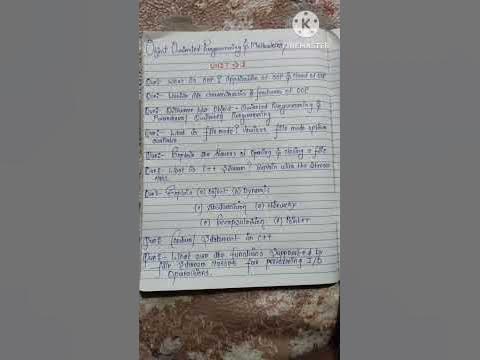 Object Oriented Programming & Methodology
KINEMASTER
UNIT → 1
Que:- What is OOP? Application of OOP &
Que:- Write the characteristics & features of OOP
Que:- Difference b/w Object - Oriented Programming &
Procedural Oriented Programming
Que:- What is file mode? Various file mode option
available
Que:- Explain the Process of Opening & closing a file
Que:- What is C++ Stream? Explain with the Stream
class.
Que:- Explain (a) Object (b) Dynamic
(c) (d) Hierarchy
(e) Encapsulation (f) Pointer
Que:- Control Statement in C++
Que:- What are the functions supported by
file Stream classes for performing I/O
Operations.